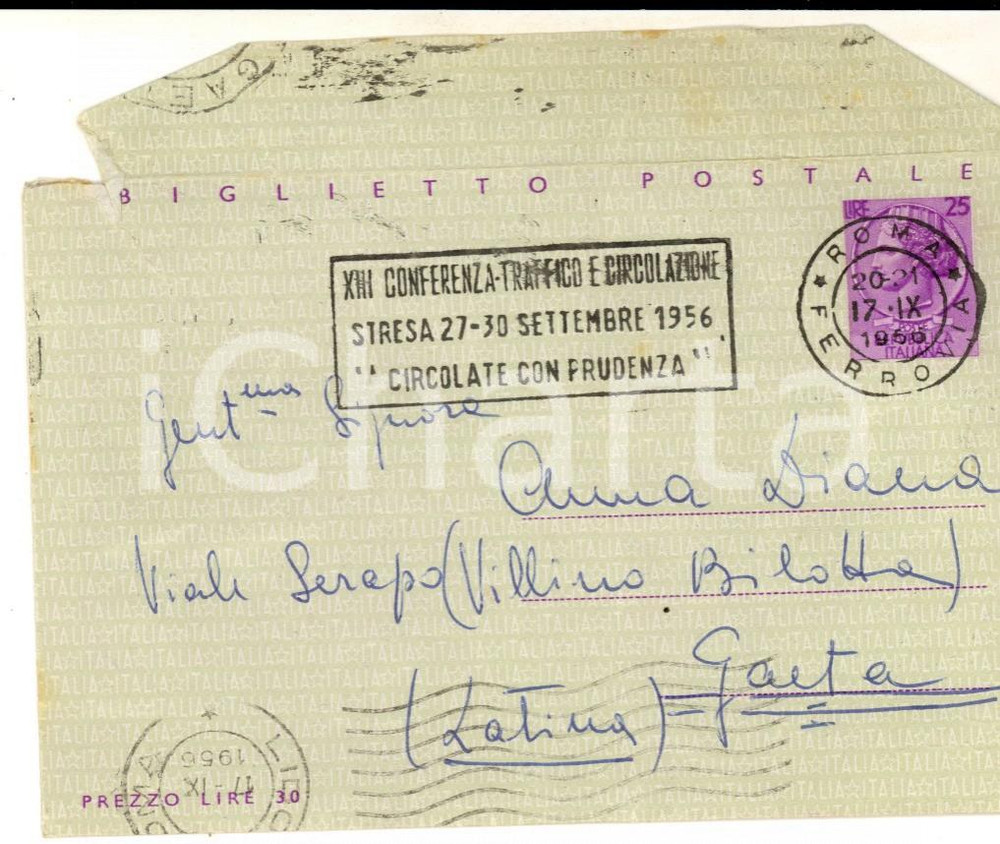 GAE
BIGLIETTO POSTALE
LIRE 25
ITALIANA
ROMA FERROVIA
20-21
17·IX
1956
XIII CONFERENZA-TRAFFICO E CIRCOLAZIONE
STRESA 27-30 SETTEMBRE 1956
"CIRCOLATE CON PRUDENZA"
iCharta
Gent.ma Signora
Anna Diana
Viale Serapo (Villino Bilotta)
Gaeta
(Latina)
17-IX
1956
PREZZO LIRE 30